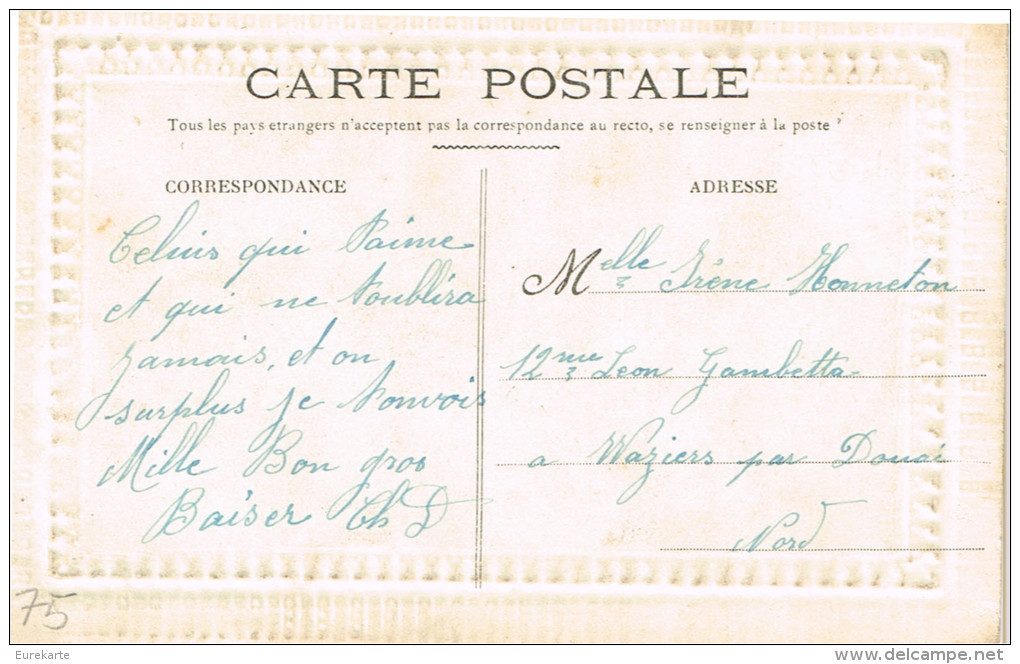 CARTE POSTALE
Tous les pays etrangers n'acceptent pas la correspondance au recto, se renseigner à la poste
CORRESPONDANCE
Celuis qui t'aime
et qui ne t'oublira
jamais, et on
surplus je t'onvois
Mille Bon gros
Baiser Ch D
ADRESSE
Melle Irène Honneton
12 rue Leon Gambetta
a Waziers par Douai
Nord
75
Eurekarte
www.delcampe.net